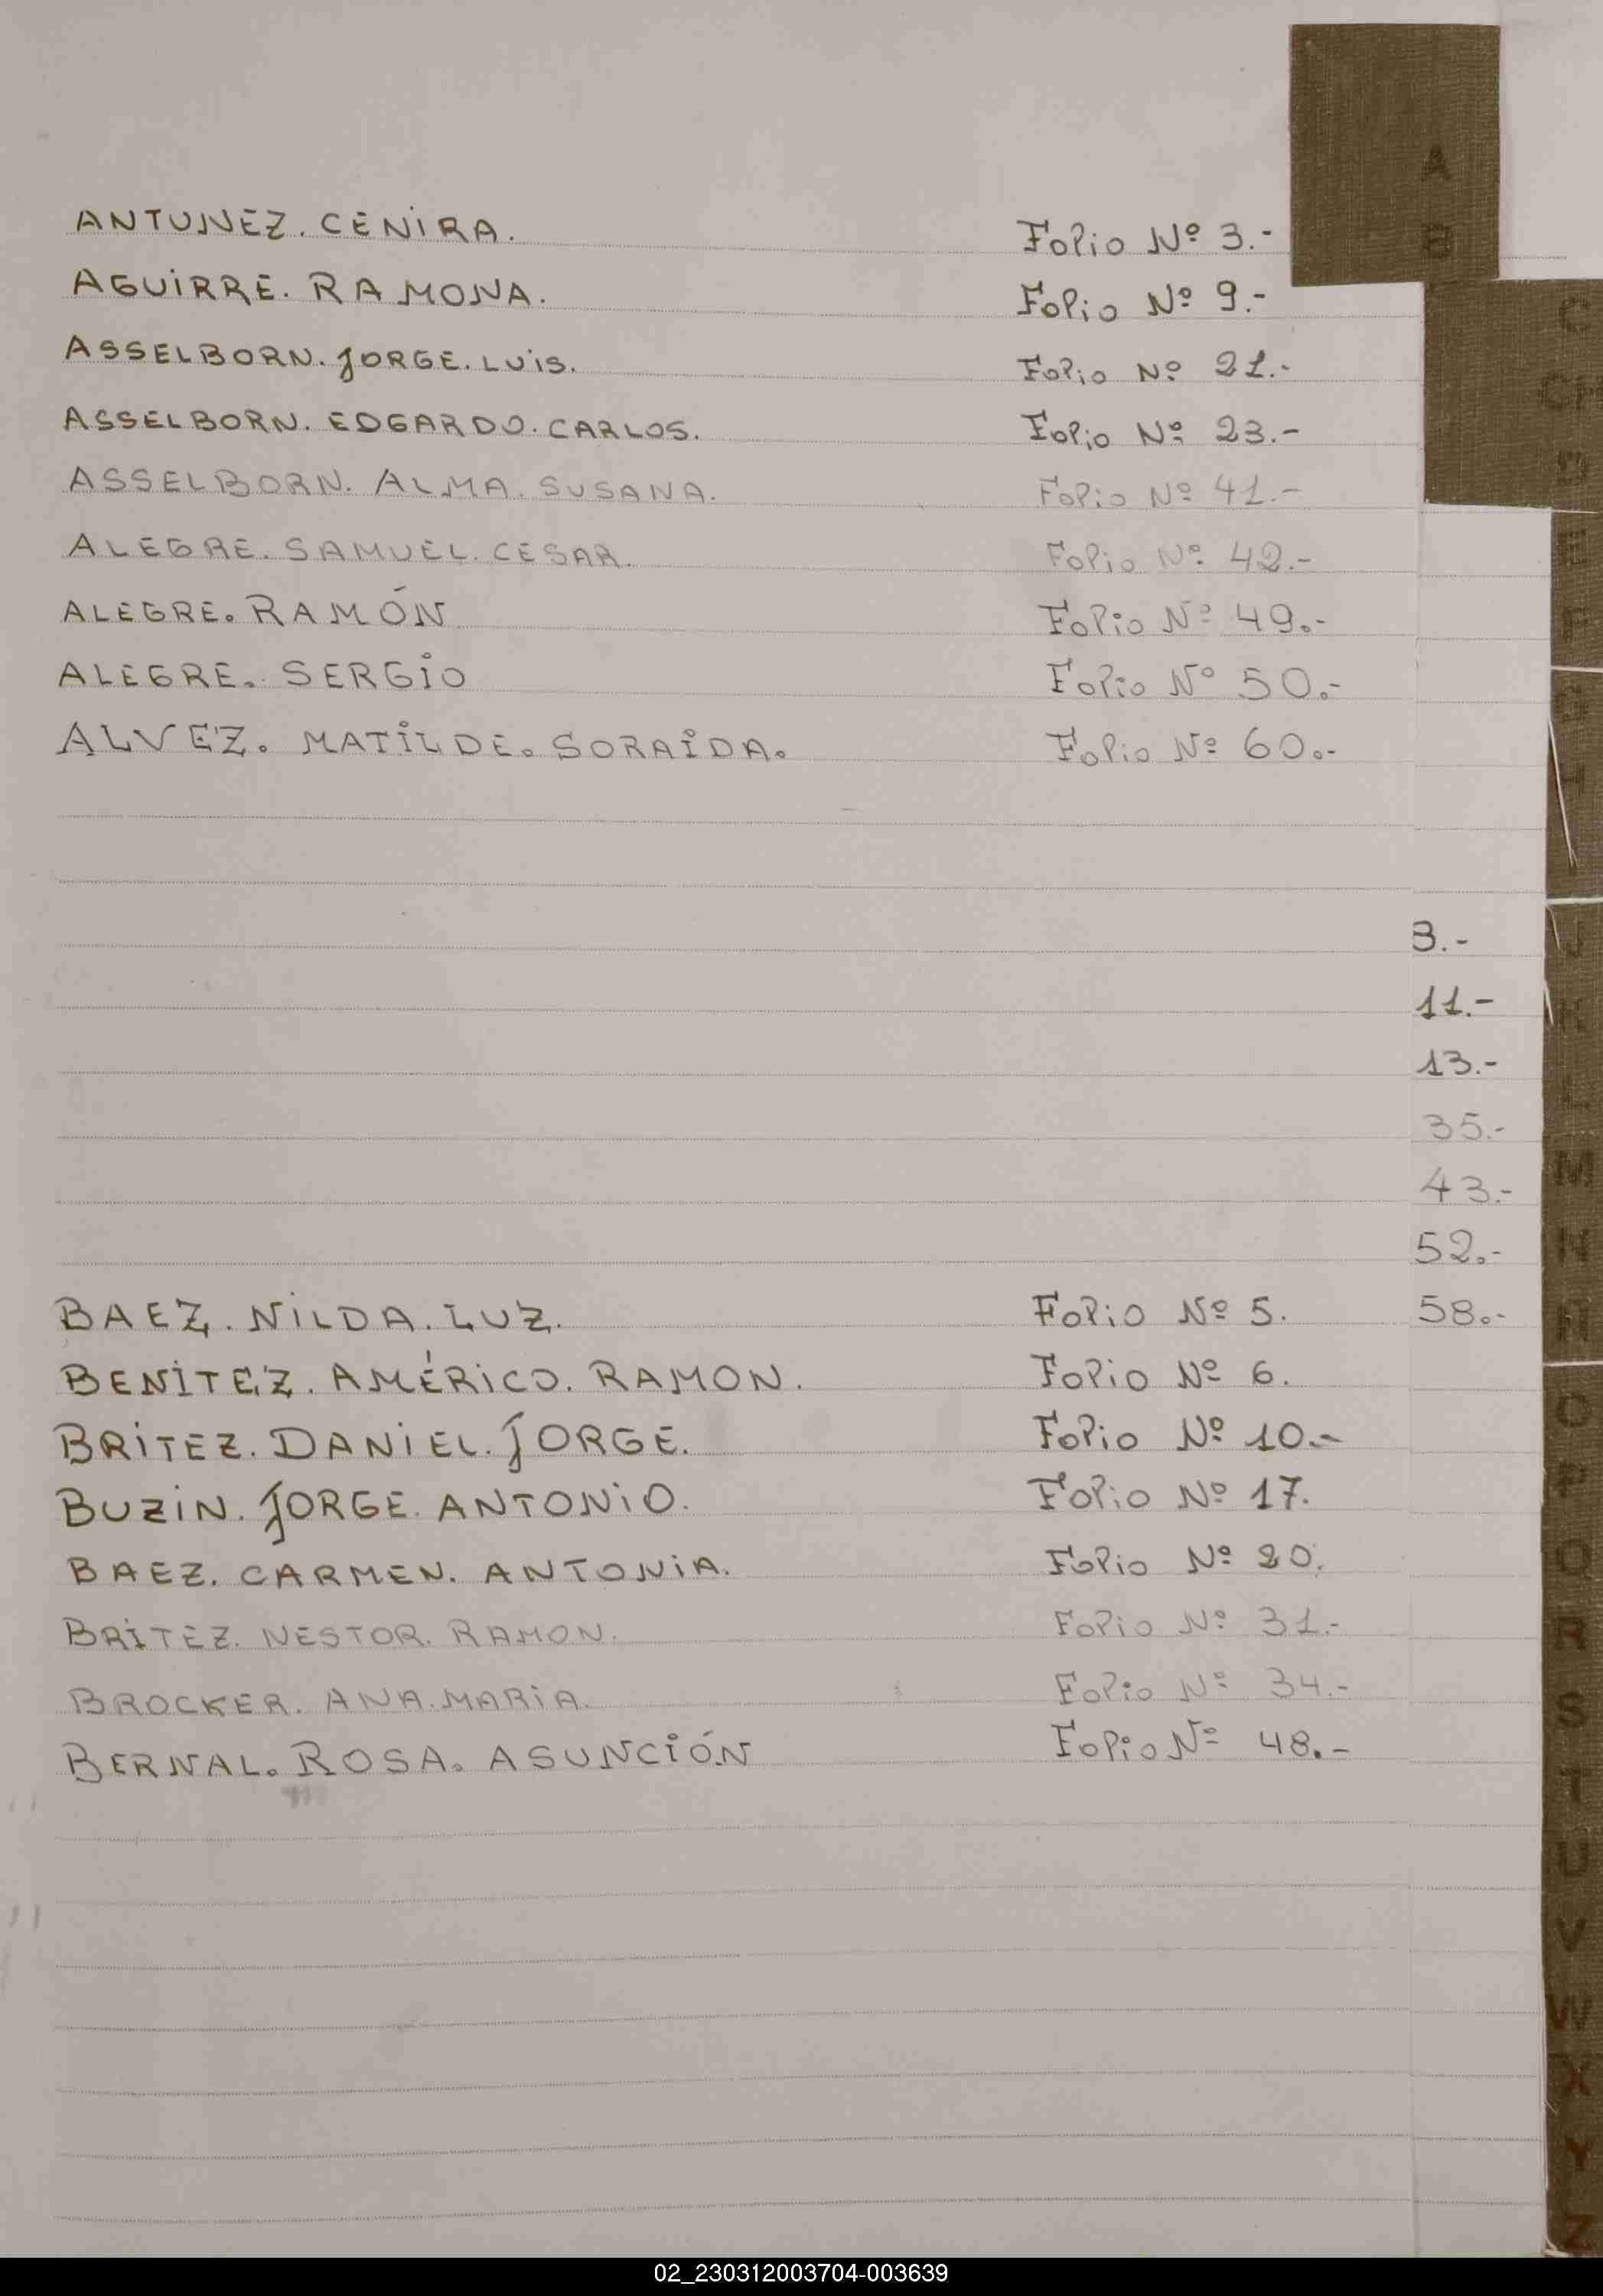 A
B
ANTUNEZ. CENIRA. Folio Nº 3.-
AGUIRRE. RAMONA. Folio Nº 9.-
ASSELBORN. JORGE. LUIS. Folio Nº 21.-
ASSELBORN. EDGARDO. CARLOS. Folio Nº 23.-
ASSELBORN. ALMA. SUSANA. Folio Nº 41.-
ALEGRE. SAMUEL. CESAR. Folio Nº 42.-
ALEGRE. RAMÓN Folio Nº 49.-
ALEGRE. SERGIO Folio Nº 50.-
ALVEZ. MATILDE. SORAIDA. Folio Nº 60.-
3.-
11.-
13.-
35.-
43.-
52.-
BAEZ. NILDA. LUZ. Folio Nº 5. 58.-
BENITEZ. AMÉRICO. RAMON. Folio Nº 6.
BRITEZ. DANIEL. JORGE. Folio Nº 10.-
BUZIN. JORGE. ANTONIO. Folio Nº 17.
BAEZ. CARMEN. ANTONIA. Folio Nº 20.
BRITEZ. NESTOR. RAMON. Folio Nº 31.-
BROCKER. ANA. MARIA. Folio Nº 34.-
BERNAL. ROSA. ASUNCIÓN Folio Nº 48.-
C
CH
D
E
F
G
H
I
J
K
L
M
N
Ñ
O
P
Q
R
S
T
U
V
W
X
Y
Z
02_230312003704-003639